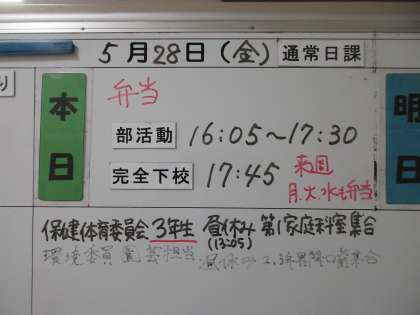 5月28日(金) 通常日課
り
本日
明日
弁当
部活動 16:05～17:30
完全下校 17:45
来週
月.火.水も弁当
保健体育委員会 3年生 昼休み 第1家庭科室集合
(13:05)
環境委員 園芸担当 昼休み 2.3年 集合